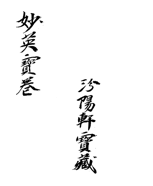 妙英寶卷
汾陽軒寶藏